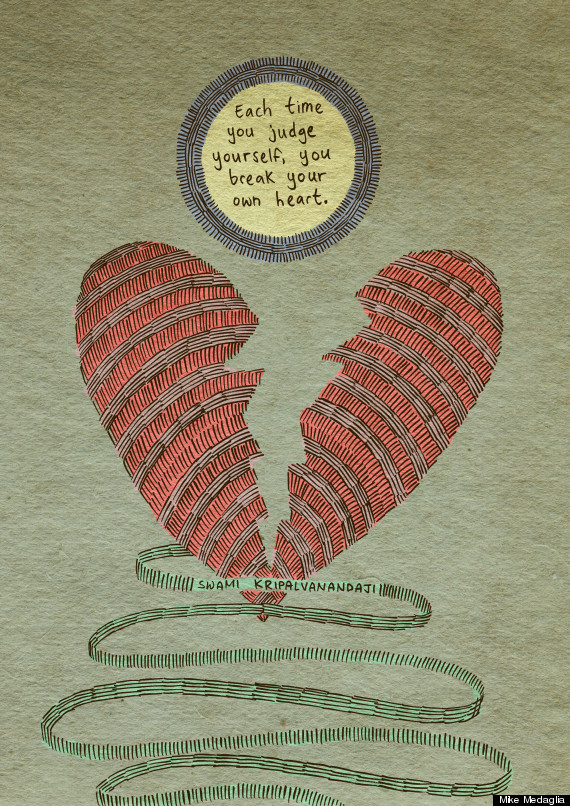 Each time
you judge
yourself, you
break your
own heart.
SWAMI KRIPALVANANDAJI
Mike Medaglia